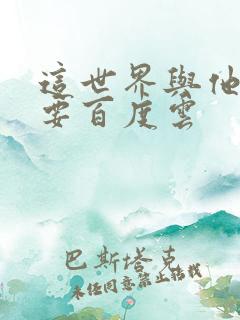 這世界與他
要百度雲
巴斯塔克
未经同意禁止转载